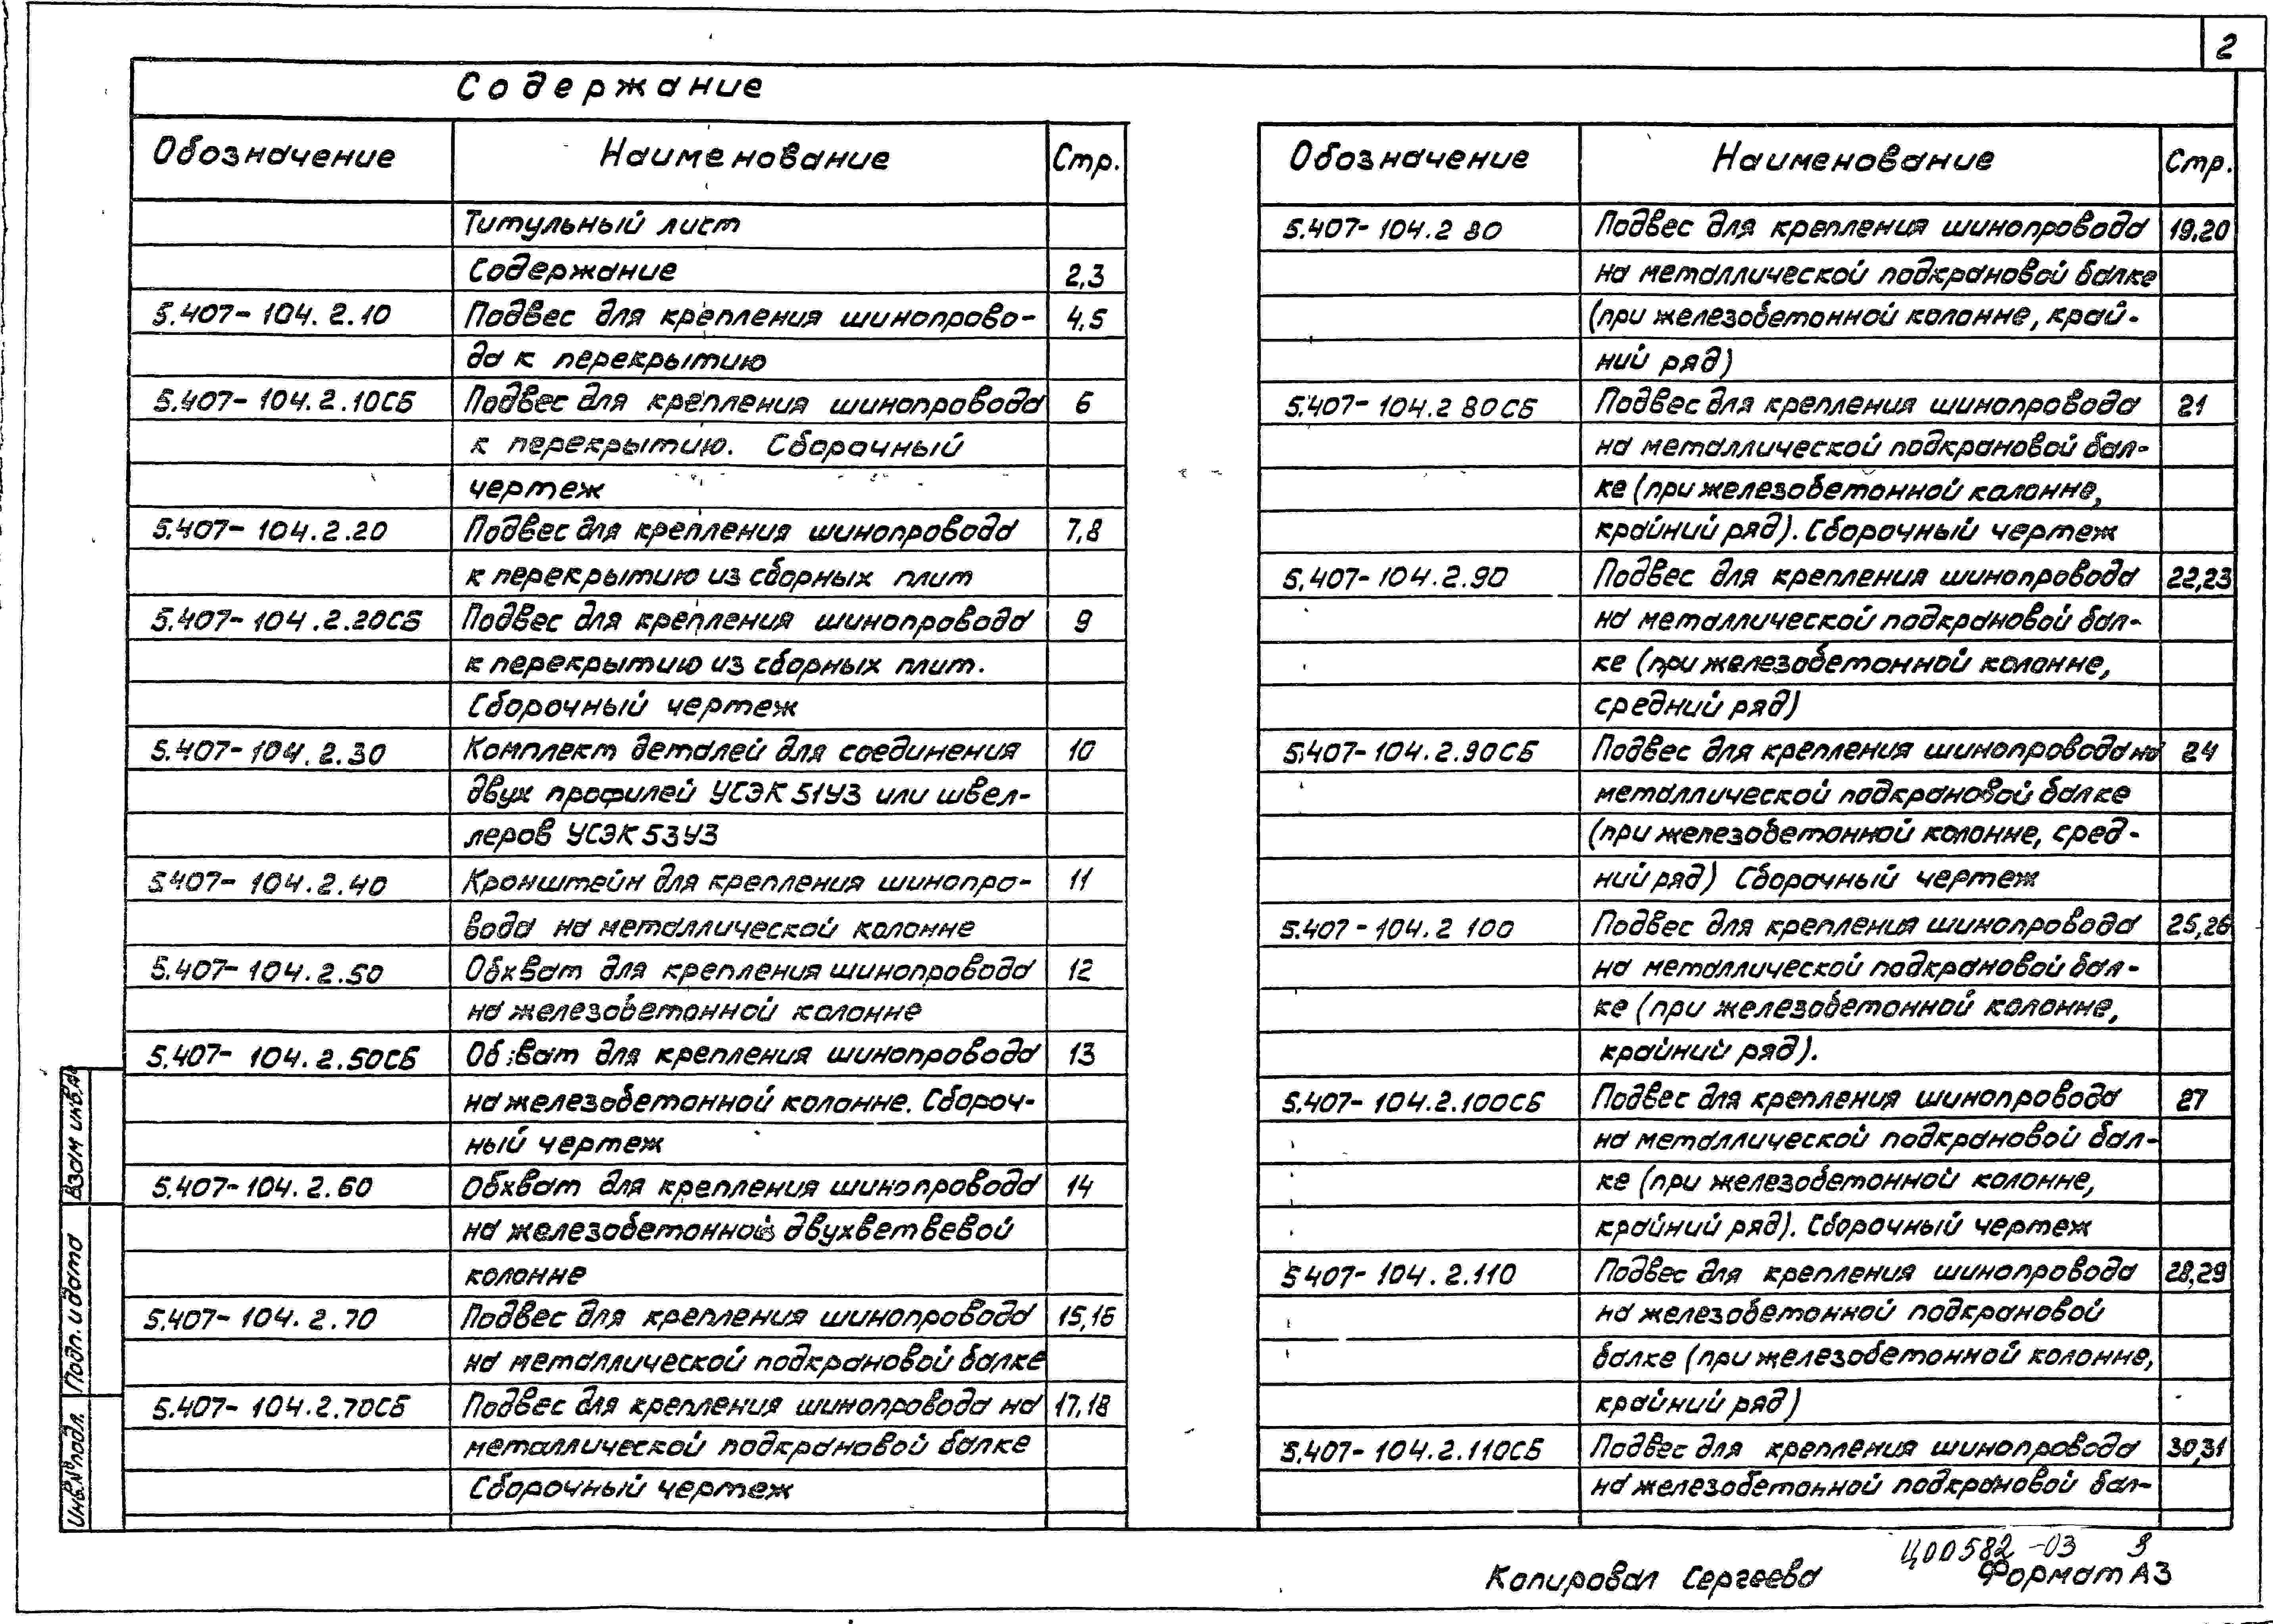 2
Содержание
Обозначение Наименование Стр.
Титульный лист
Содержание 2,3
5.407-104.2.10 Подвес для крепления шинопрово- 4,5
да к перекрытию
5.407-104.2.10СБ Подвес для крепления шинопровода 6
к перекрытию. Сборочный
чертеж
5.407-104.2.20 Подвес для крепления шинопровода 7,8
к перекрытию из сборных плит
5.407-104.2.20СБ Подвес для крепления шинопровода 9
к перекрытию из сборных плит.
Сборочный чертеж
5.407-104.2.30 Комплект деталей для соединения 10
двух профилей УСЭК 51У3 или швел-
леров УСЭК 53У3
5.407-104.2.40 Кронштейн для крепления шинопро- 11
вода на металлической колонне
5.407-104.2.50 Обхват для крепления шинопровода 12
на железобетонной колонне
5.407-104.2.50СБ Об:ват для крепления шинопровода 13
на железобетонной колонне. Сбороч-
ный чертеж
5.407-104.2.60 Обхват для крепления шинопровода 14
на железобетонной двухветвевой
колонне
5.407-104.2.70 Подвес для крепления шинопровода 15,16
на металлической подкрановой балке
5.407-104.2.70СБ Подвес для крепления шинопровода на 17,18
металлической подкрановой балке
Сборочный чертеж
Обозначение Наименование Стр.
5.407-104.2 80 Подвес для крепления шинопровода 19,20
на металлической подкрановой балке
(при железобетонной колонне, край-
ний ряд)
5.407-104.2 80СБ Подвес для крепления шинопровода 21
на металлической подкрановой бал-
ке (при железобетонной колонне,
крайний ряд). Сборочный чертеж
5.407-104.2.90 Подвес для крепления шинопровода 22,23
на металлической подкрановой бал-
ке (при железобетонной колонне,
средний ряд)
5.407-104.2.90СБ Подвес для крепления шинопровода на 24
металлической подкрановой балке
(при железобетонной колонне, сред-
ний ряд) Сборочный чертеж
5.407-104.2 100 Подвес для крепления шинопровода 25,26
на металлической подкрановой бал-
ке (при железобетонной колонне,
крайний ряд).
5.407-104.2.100СБ Подвес для крепления шинопровода 27
на металлической подкрановой бал-
ке (при железобетонной колонне,
крайний ряд). Сборочный чертеж
5 407-104.2.110 Подвес для крепления шинопровода 28,29
на железобетонной подкрановой
балке (при железобетонной колонне,
крайний ряд)
5.407-104.2.110СБ Подвес для крепления шинопровода 30,31
на железобетонной подкрановой бал-
Взам инв.№
Подп. и дата
Инв.№подл.
Ц00582-03 3
Копировал Сергеева Формат А3